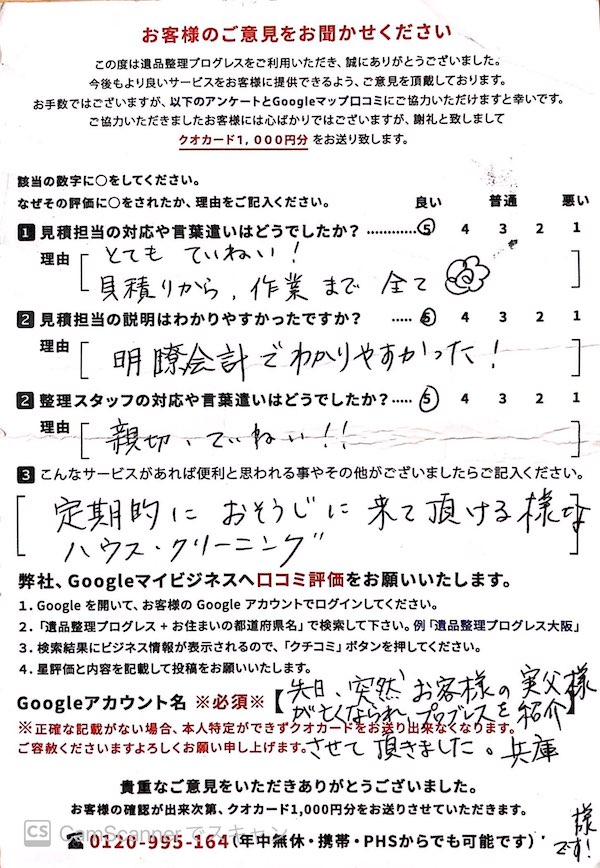 お客様のご意見をお聞かせください
この度は遺品整理プログレスをご利用いただき、誠にありがとうございました。
今後もより良いサービスをお客様に提供できるよう、ご意見を頂戴しております。
お手数ではございますが、以下のアンケートとGoogleマップ口コミにご協力いただけますと幸いです。
ご協力いただきましたお客様には心ばかりではございますが、謝礼と致しまして
クオカード1,000円分をお送り致します。
該当の数字に〇をしてください。
なぜその評価に〇をされたか、理由をご記入ください。 良い 普通 悪い
1 見積担当の対応や言葉遣いはどうでしたか？ ............ 5 4 3 2 1
理由 [ とても ていねい！
見積りから、作業まで全て ]
2 見積担当の説明はわかりやすかったですか？ ..... 5 4 3 2 1
理由 [ 明瞭会計でわかりやすかった！ ]
2 整理スタッフの対応や言葉遣いはどうでしたか？ ..... 5 4 3 2 1
理由 [ 親切、ていねい!! ]
3 こんなサービスがあれば便利と思われる事やその他がございましたらご記入ください。
[ 定期的に おそうじに 来て頂ける様な
ハウス・クリーニング ]
弊社、Googleマイビジネスへ口コミ評価をお願いいたします。
1. Google を開いて、お客様の Google アカウントでログインしてください。
2. 「遺品整理プログレス + お住まいの都道府県名」で検索して下さい。例「遺品整理プログレス大阪」
3. 検索結果にビジネス情報が表示されるので、「クチコミ」ボタンを押してください。
4. 星評価と内容を記載して投稿をお願いいたします。
Googleアカウント名 ※必須※【 】
先日、突然 お客様の実父様
が亡くなられ、プログレスを紹介
させて頂きました。兵庫
※正確な記載がない場合、本人特定ができずクオカードをお送り出来なくなります。
ご容赦くださいますようよろしくお願い申し上げます。
貴重なご意見をいただきありがとうございました。
お客様の確認が出来次第、クオカード1,000円分をお送りさせていただきます。
様
です!
CS CamScanner でスキャン
☎ 0120-995-164(年中無休・携帯・PHSからでも可能です)